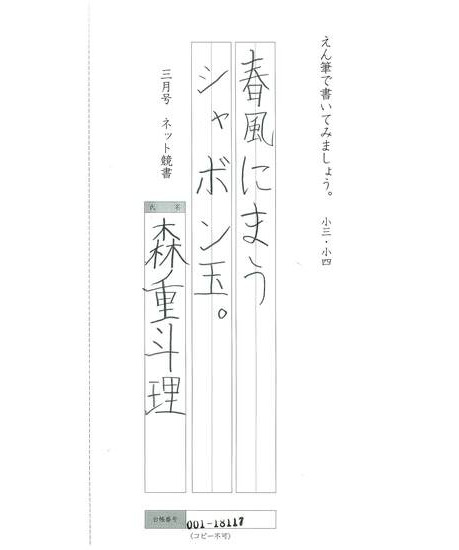 えん筆で書いてみましょう。 小三・小四
春風にまう
シャボン玉。
三月号 ネット競書
氏名
森重斗理
台帳番号
001-18117
(コピー不可)